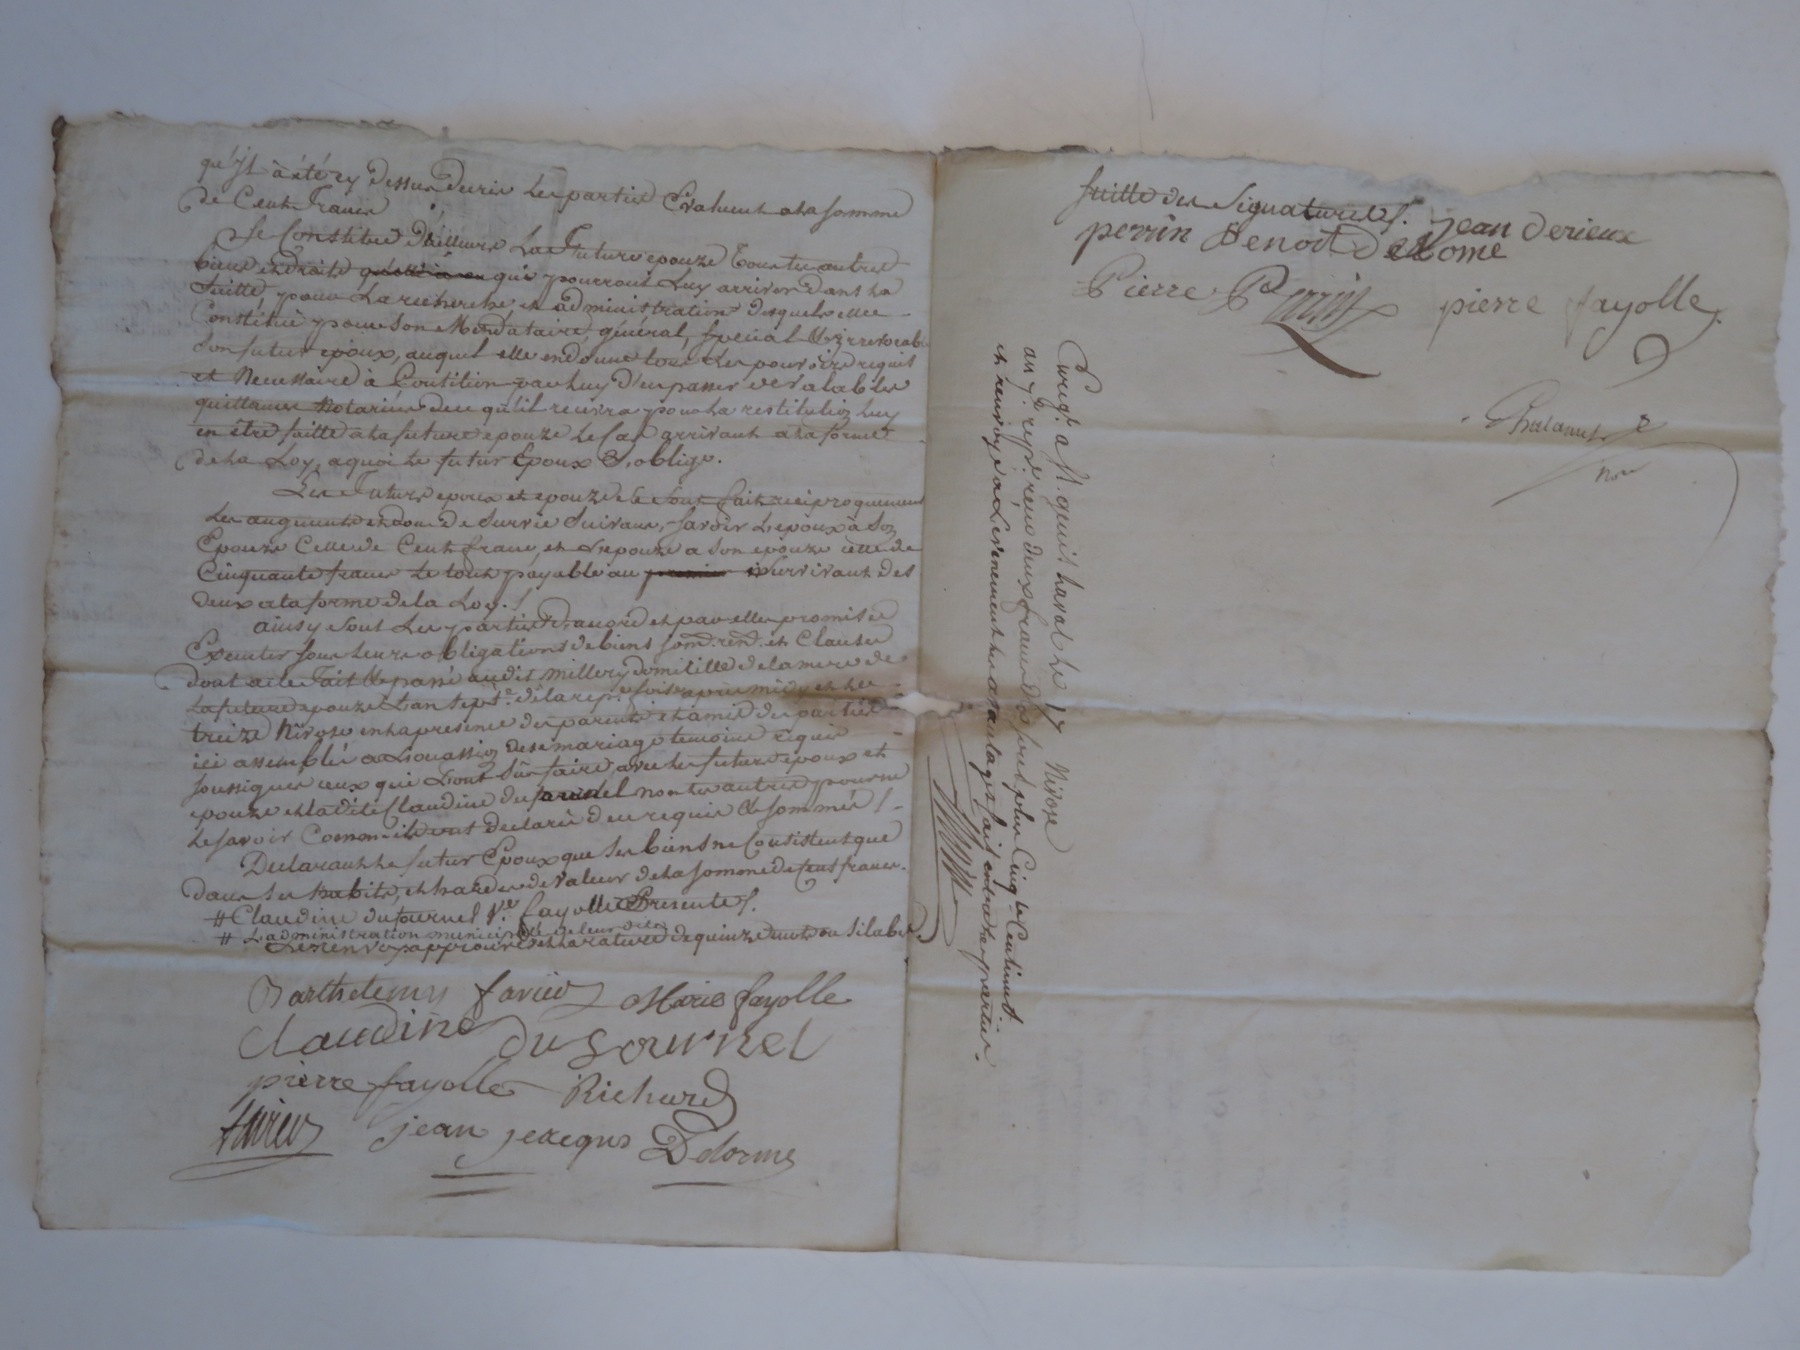 de Cent francs
Se Constitue D'ailleurs La Future epouze Tous ses autres
biens et Droits qui pourront Luy arriver Dans La
Suitte pour La recherche et administration Desquels elle
Constitue pour son Mendataire général, special & irrevocable
son futur epoux, auquel elle en donne tous Les pouvoirs requis
et Necessaire à Condition par Luy D'en passer valables
quittances Notariées de ce qu'il recevra pour La restitution Luy
en être faitte a La future epouze Le Cas arrivant a La forme
de La Loy, a quoi Le futur Epoux S'oblige.
Les Futurs epoux et epouze se sont fait reciproquement
Les augments et dons de Survie Suivans, Savoir L'epoux à Son
Epouze Celle de Cent francs, et L'epouze a Son epoux celle de
Cinquante francs Le tout payable au premier survivant des
deux a La forme de La Loy./
ainsy Sont Les parties D'accord et par elles promis
Executer sous Leurs obligations de biens et Clauses
dont acte Fait & passé audit millery domicille de La mere de
La future epouze L'an Sept.e de La rep.e apres midy et Le
treize Nivose en La presence des parents et amis des parties
ici assemblés a L'occasion de ce mariage temoins requis
soussignés ceux qui L'ont Sû faire avec Les futurs epoux et
epouze et Ladite Claudine dufournel non Les autres pour ne
Le savoir Comme ils ont declaré de ce requis & sommés /-
Declarant Le futur Epoux que Ses biens ne Consistent que
dans Ses habits, et hardes de Valeur de La somme de Cent francs.
# Claudine Dufournel V.e fayolle Presente /.
# L'administration municipale de leur
Les renvoys approuvés et La rature de quinze mots ou Silabes
Barthelemy favier Marie fayolle
claudine du fournel
pierre fayolle Richard
favier jean jacques Delorme
suitte des Signatures /. jean Derieux
perrin Benoit delorme
Pierre Perrin pierre fayolle
Nre
Enreg.é a St. genis Laval Le 17 Nivose
an 7. rep. reçu deux francs Dix sous plus Cinq Centimes
et renvoyé a L'evenement Les avantages faits entre Les parties.